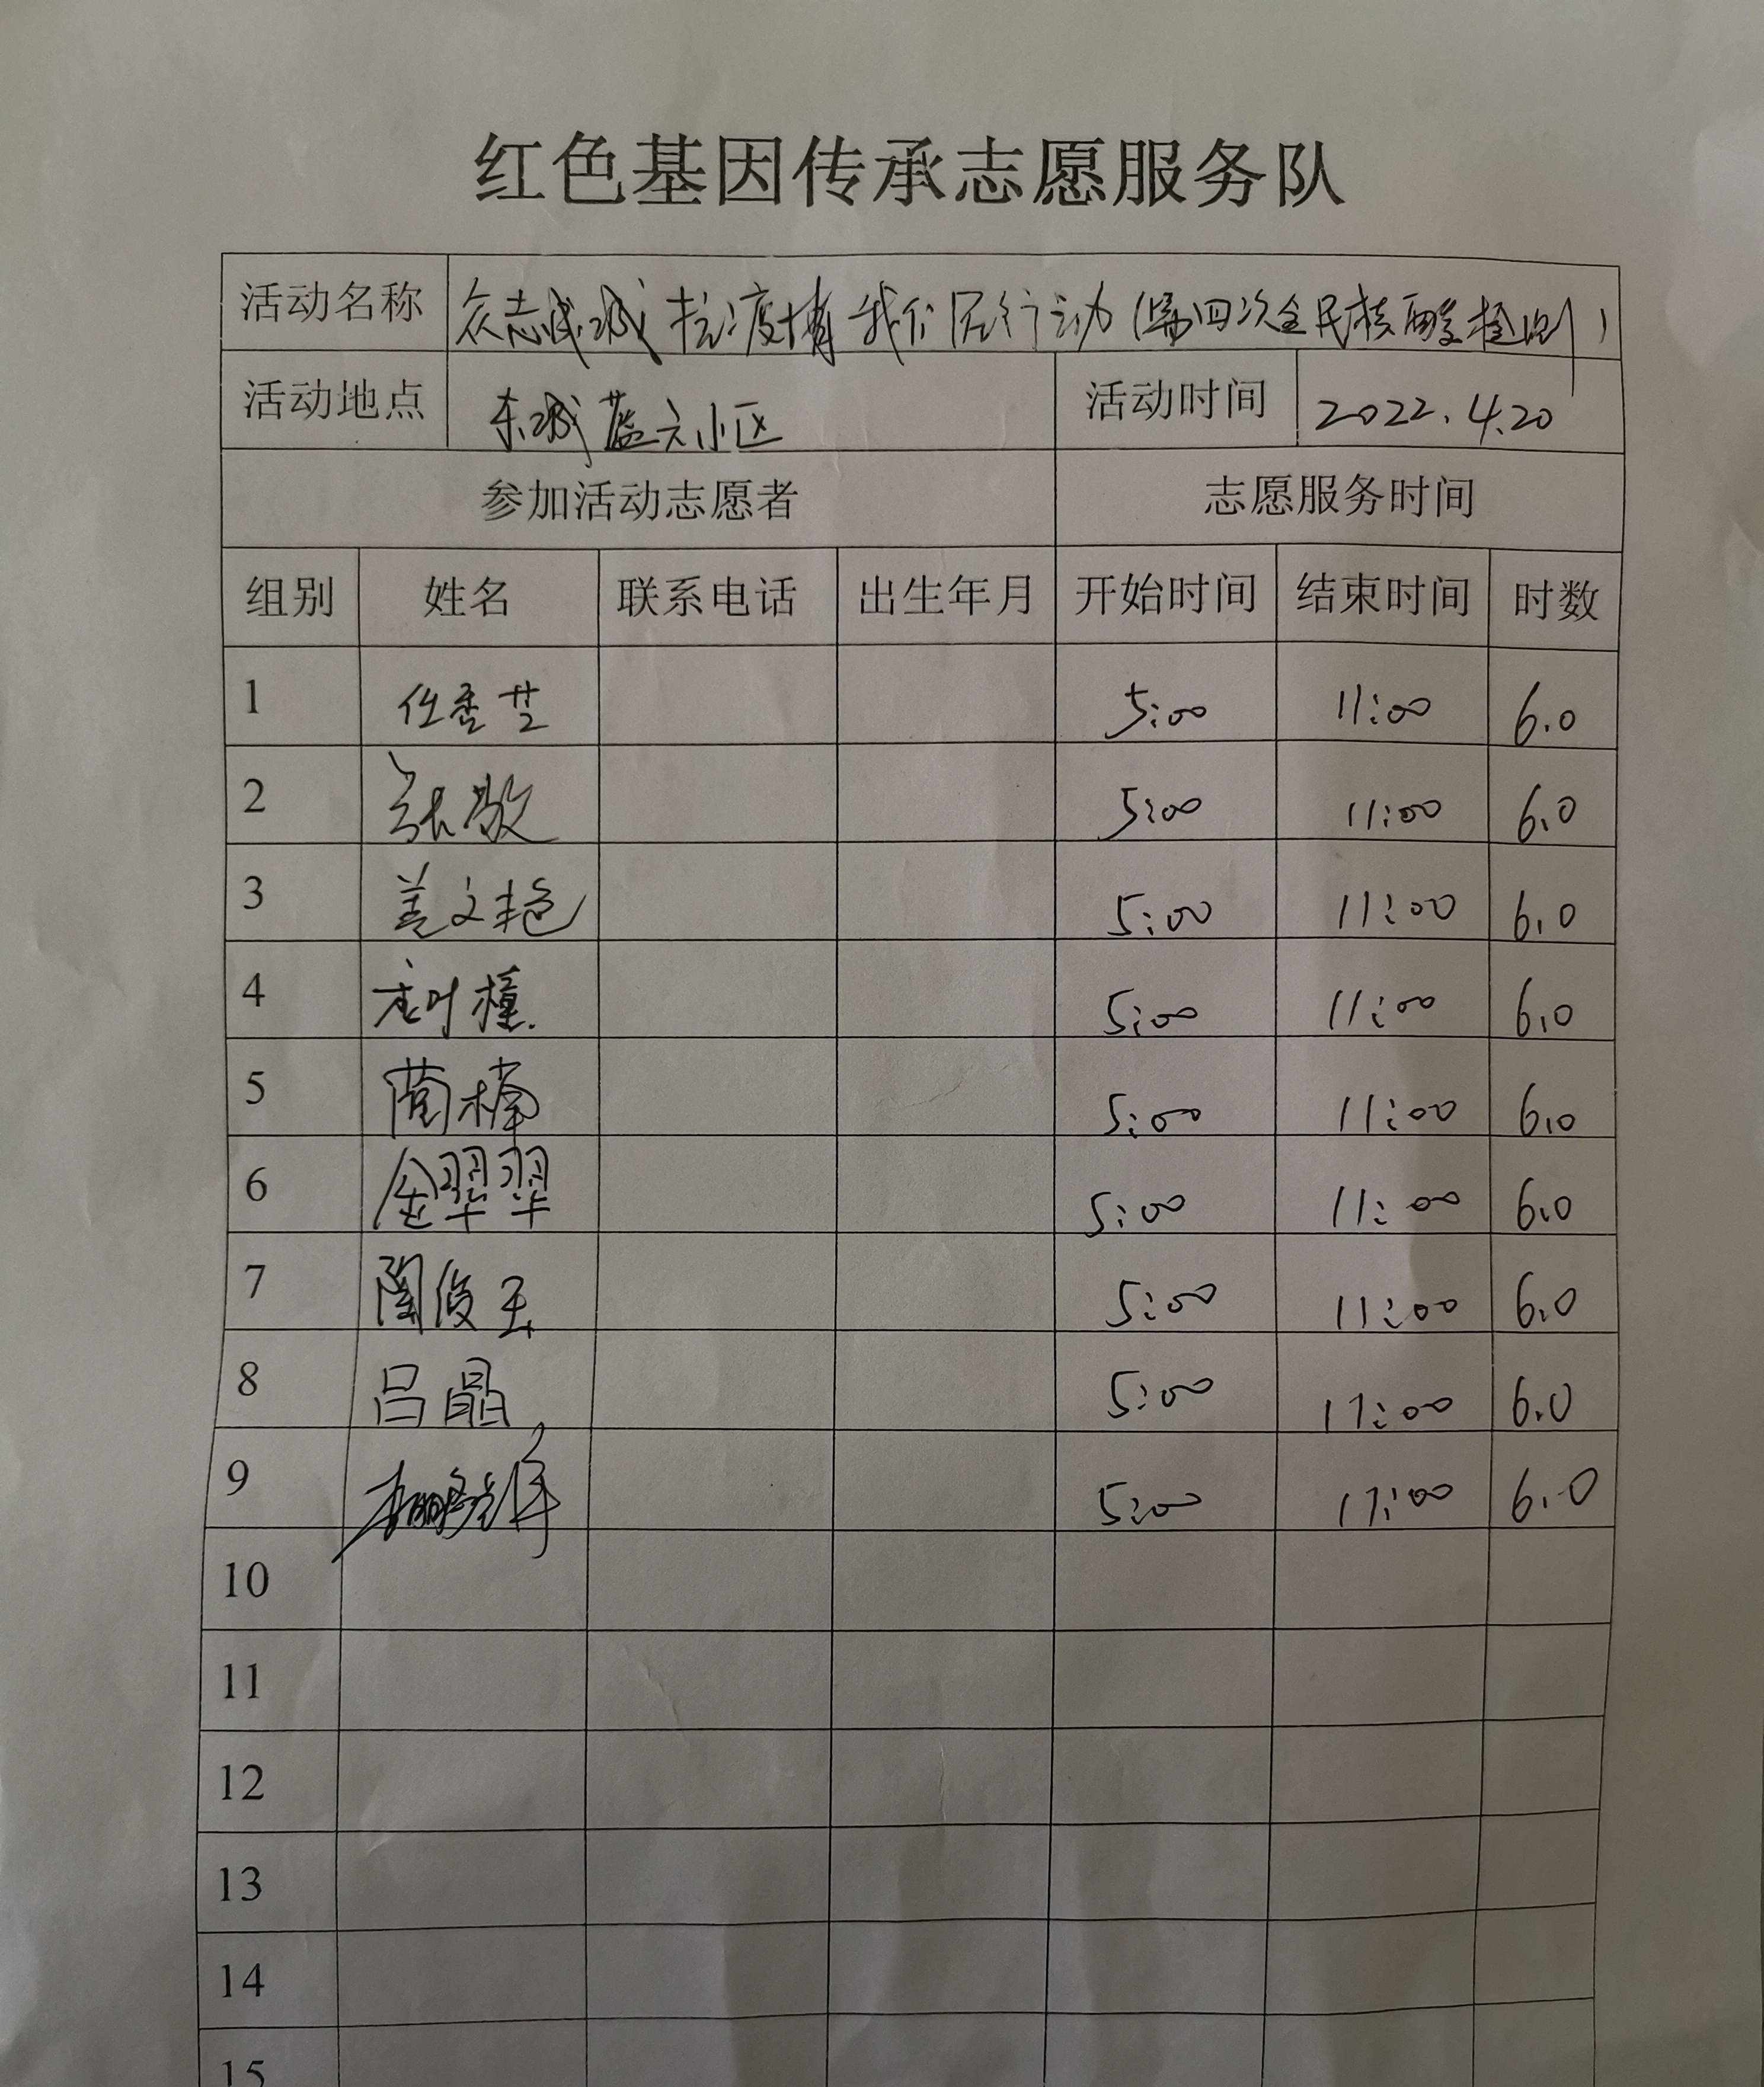 红色基因传承志愿服务队
活动名称 众志成城 抗疫情 我们在行动(第四次全民核酸检测)
活动地点 东城蓝天小区 活动时间 2022.4.20
参加活动志愿者 志愿服务时间
组别 姓名 联系电话 出生年月 开始时间 结束时间 时数
1 任秀芝 5:00 11:00 6.0
2 张敬 5:00 11:00 6.0
3 姜文艳 5:00 11:00 6.0
4 5:00 11:00 6.0
5 蔺楠 5:00 11:00 6.0
6 金翠翠 5:00 11:00 6.0
7 陶俊玉 5:00 11:00 6.0
8 吕晶 5:00 11:00 6.0
9 5:00 11:00 6.0
10
11
12
13
14
15